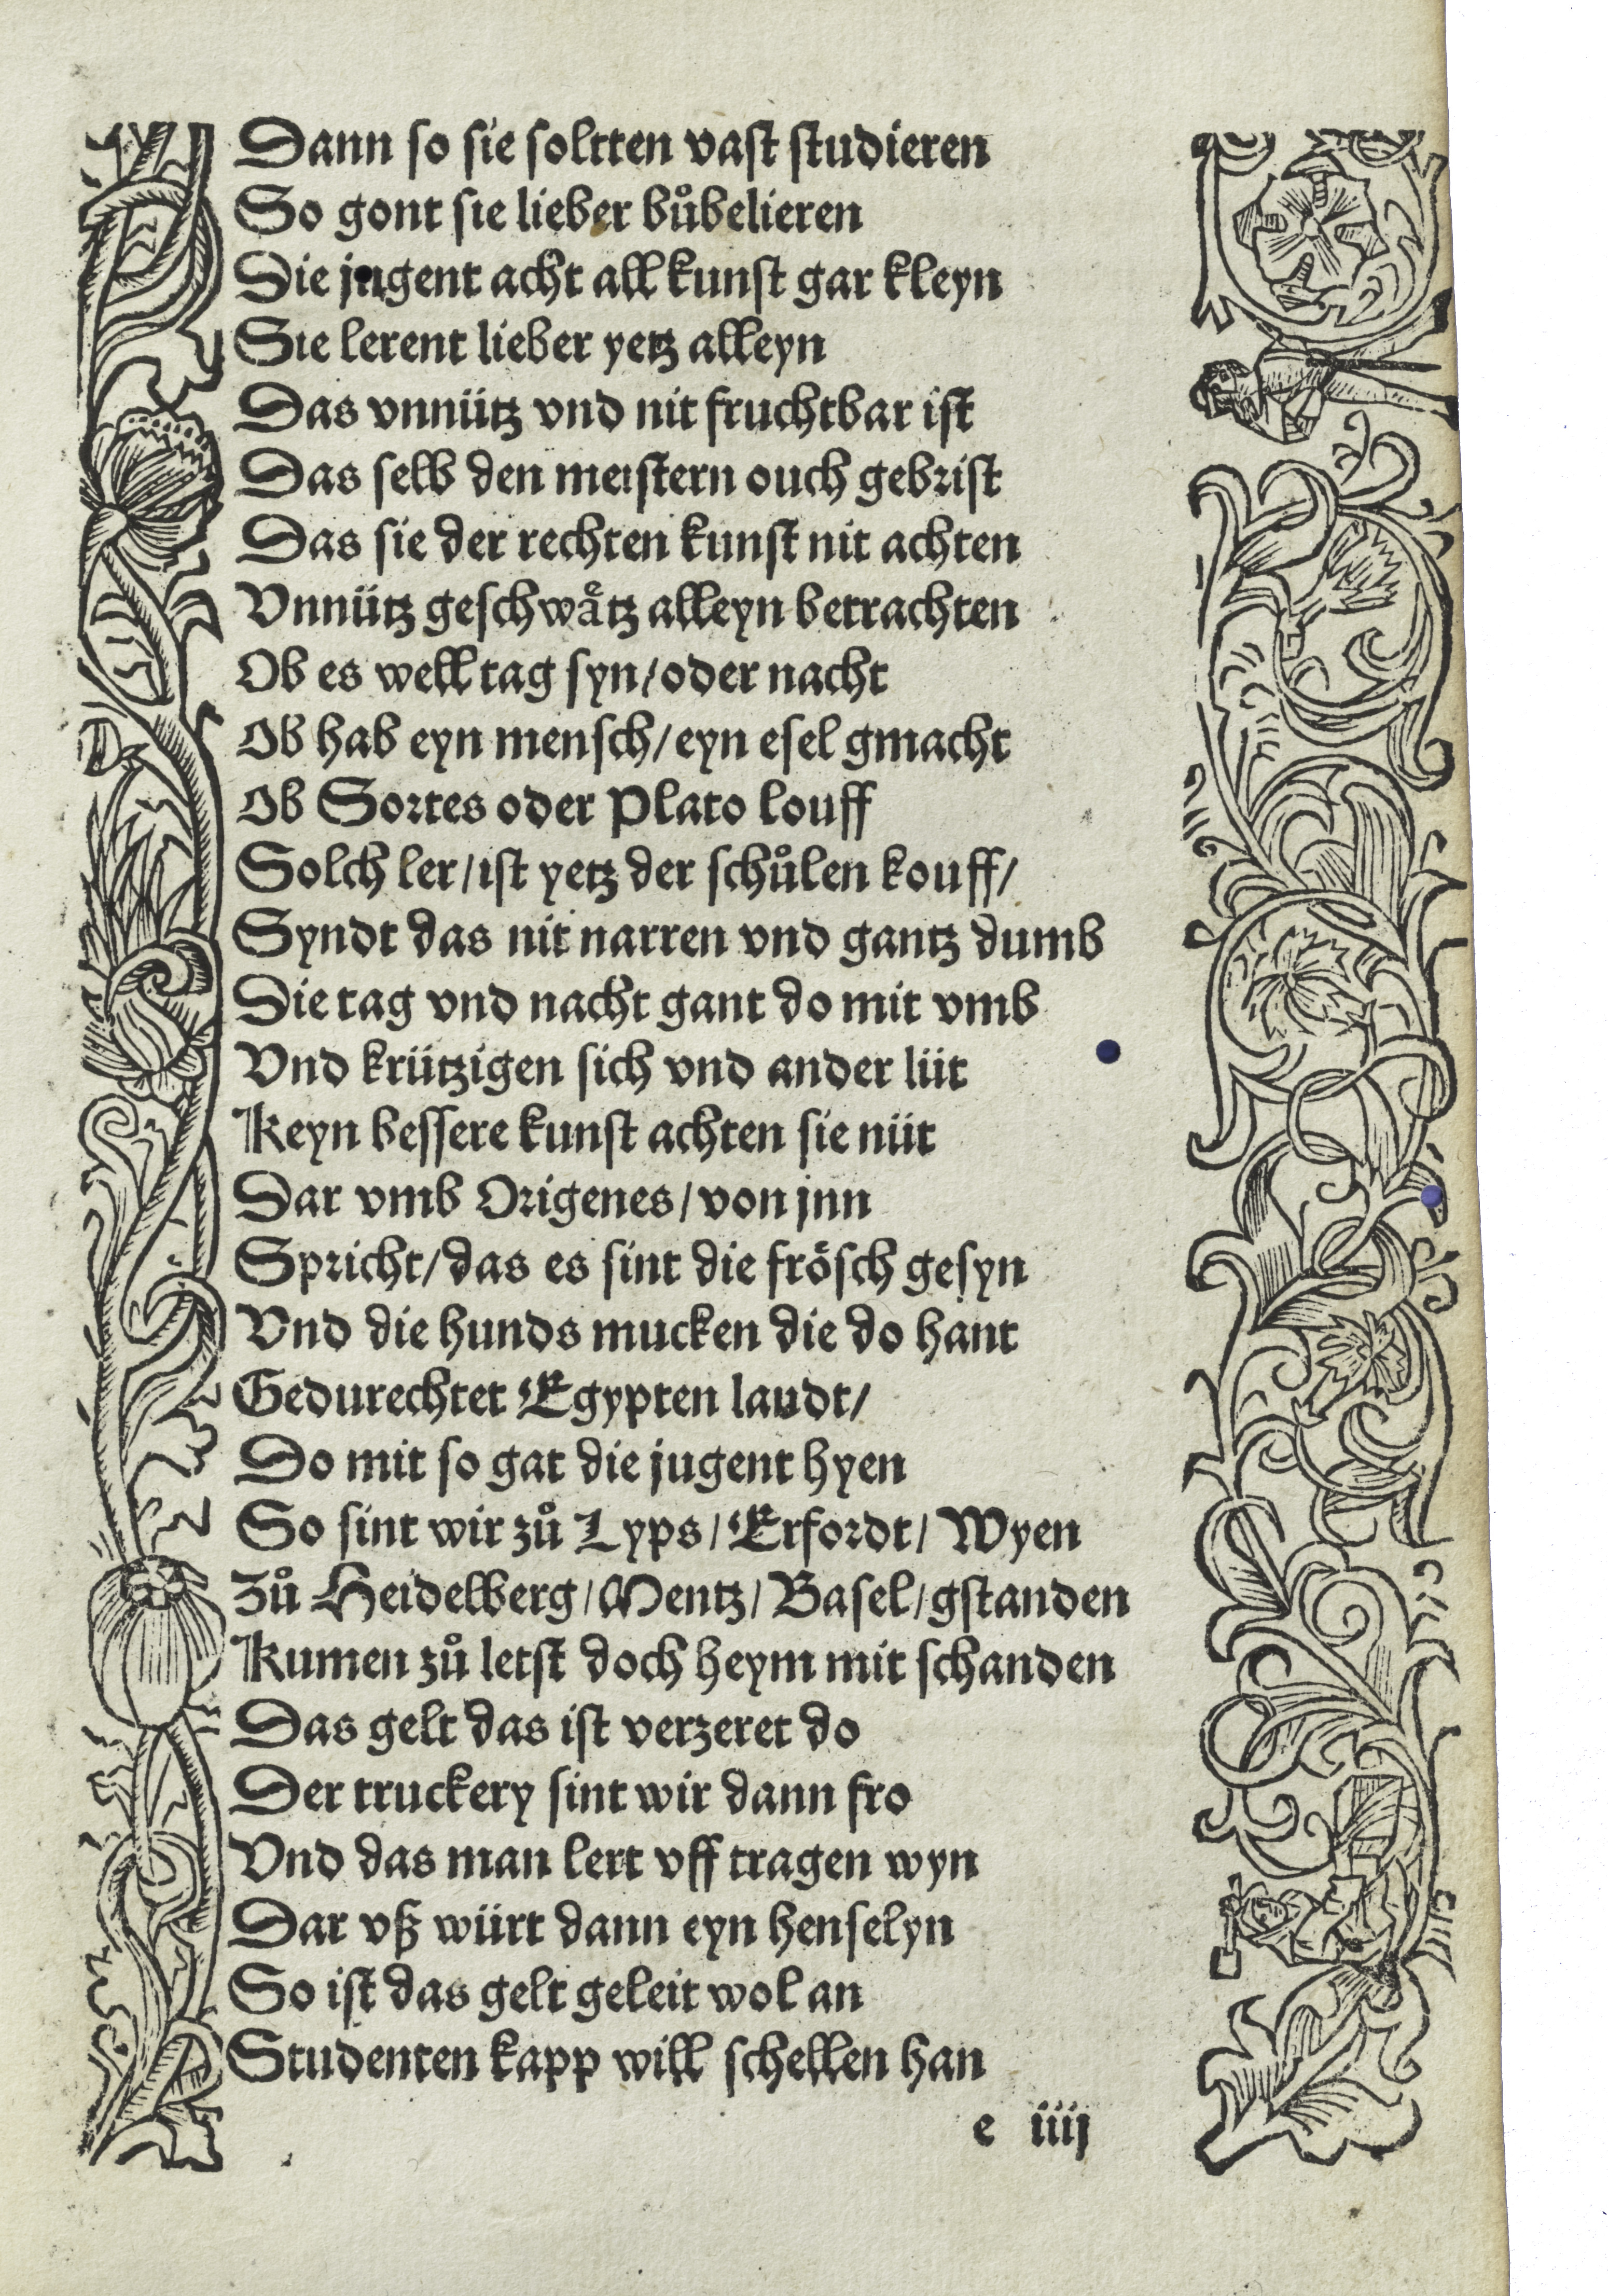 Dann so sie soltten vast studieren
So gont sie lieber bůbelieren
Die jugent acht all kunst gar kleyn
Sie lerent lieber yetz alleyn
Das vnnütz vnd nit fruchtbar ist
Das selb den meistern ouch gebrist
Das sie der rechten kunst nit achten
Vnnütz geschwåtz alleyn betrachten
Ob es well tag syn/oder nacht
Ob hab eyn mensch/eyn esel gmacht
Ob Sortes oder Plato louff
Solch ler/ist yetz der schůlen kouff/
Syndt das nit narren vnd gantz dumb
Die tag vnd nacht gant do mit vmb
Vnd krützigen sich vnd ander lüt
Keyn bessere kunst achten sie nüt
Dar vmb Origenes/von jnn
Spricht/das es sint die frösch gesyn
Vnd die hunds mucken die do hant
Gedurechtet Egypten laudt/
Do mit so gat die jugent hyen
So sint wir zů Lyps/Erfordt/Wyen
Zů Heidelberg/Mentz/Basel/gstanden
Kumen zů letst doch heym mit schanden
Das gelt das ist verzeret do
Der truckery sint wir dann fro
Vnd das man lert vff tragen wyn
Dar vß würt dann eyn henselyn
So ist das gelt geleit wol an
Studenten kapp will schellen han
e iiij